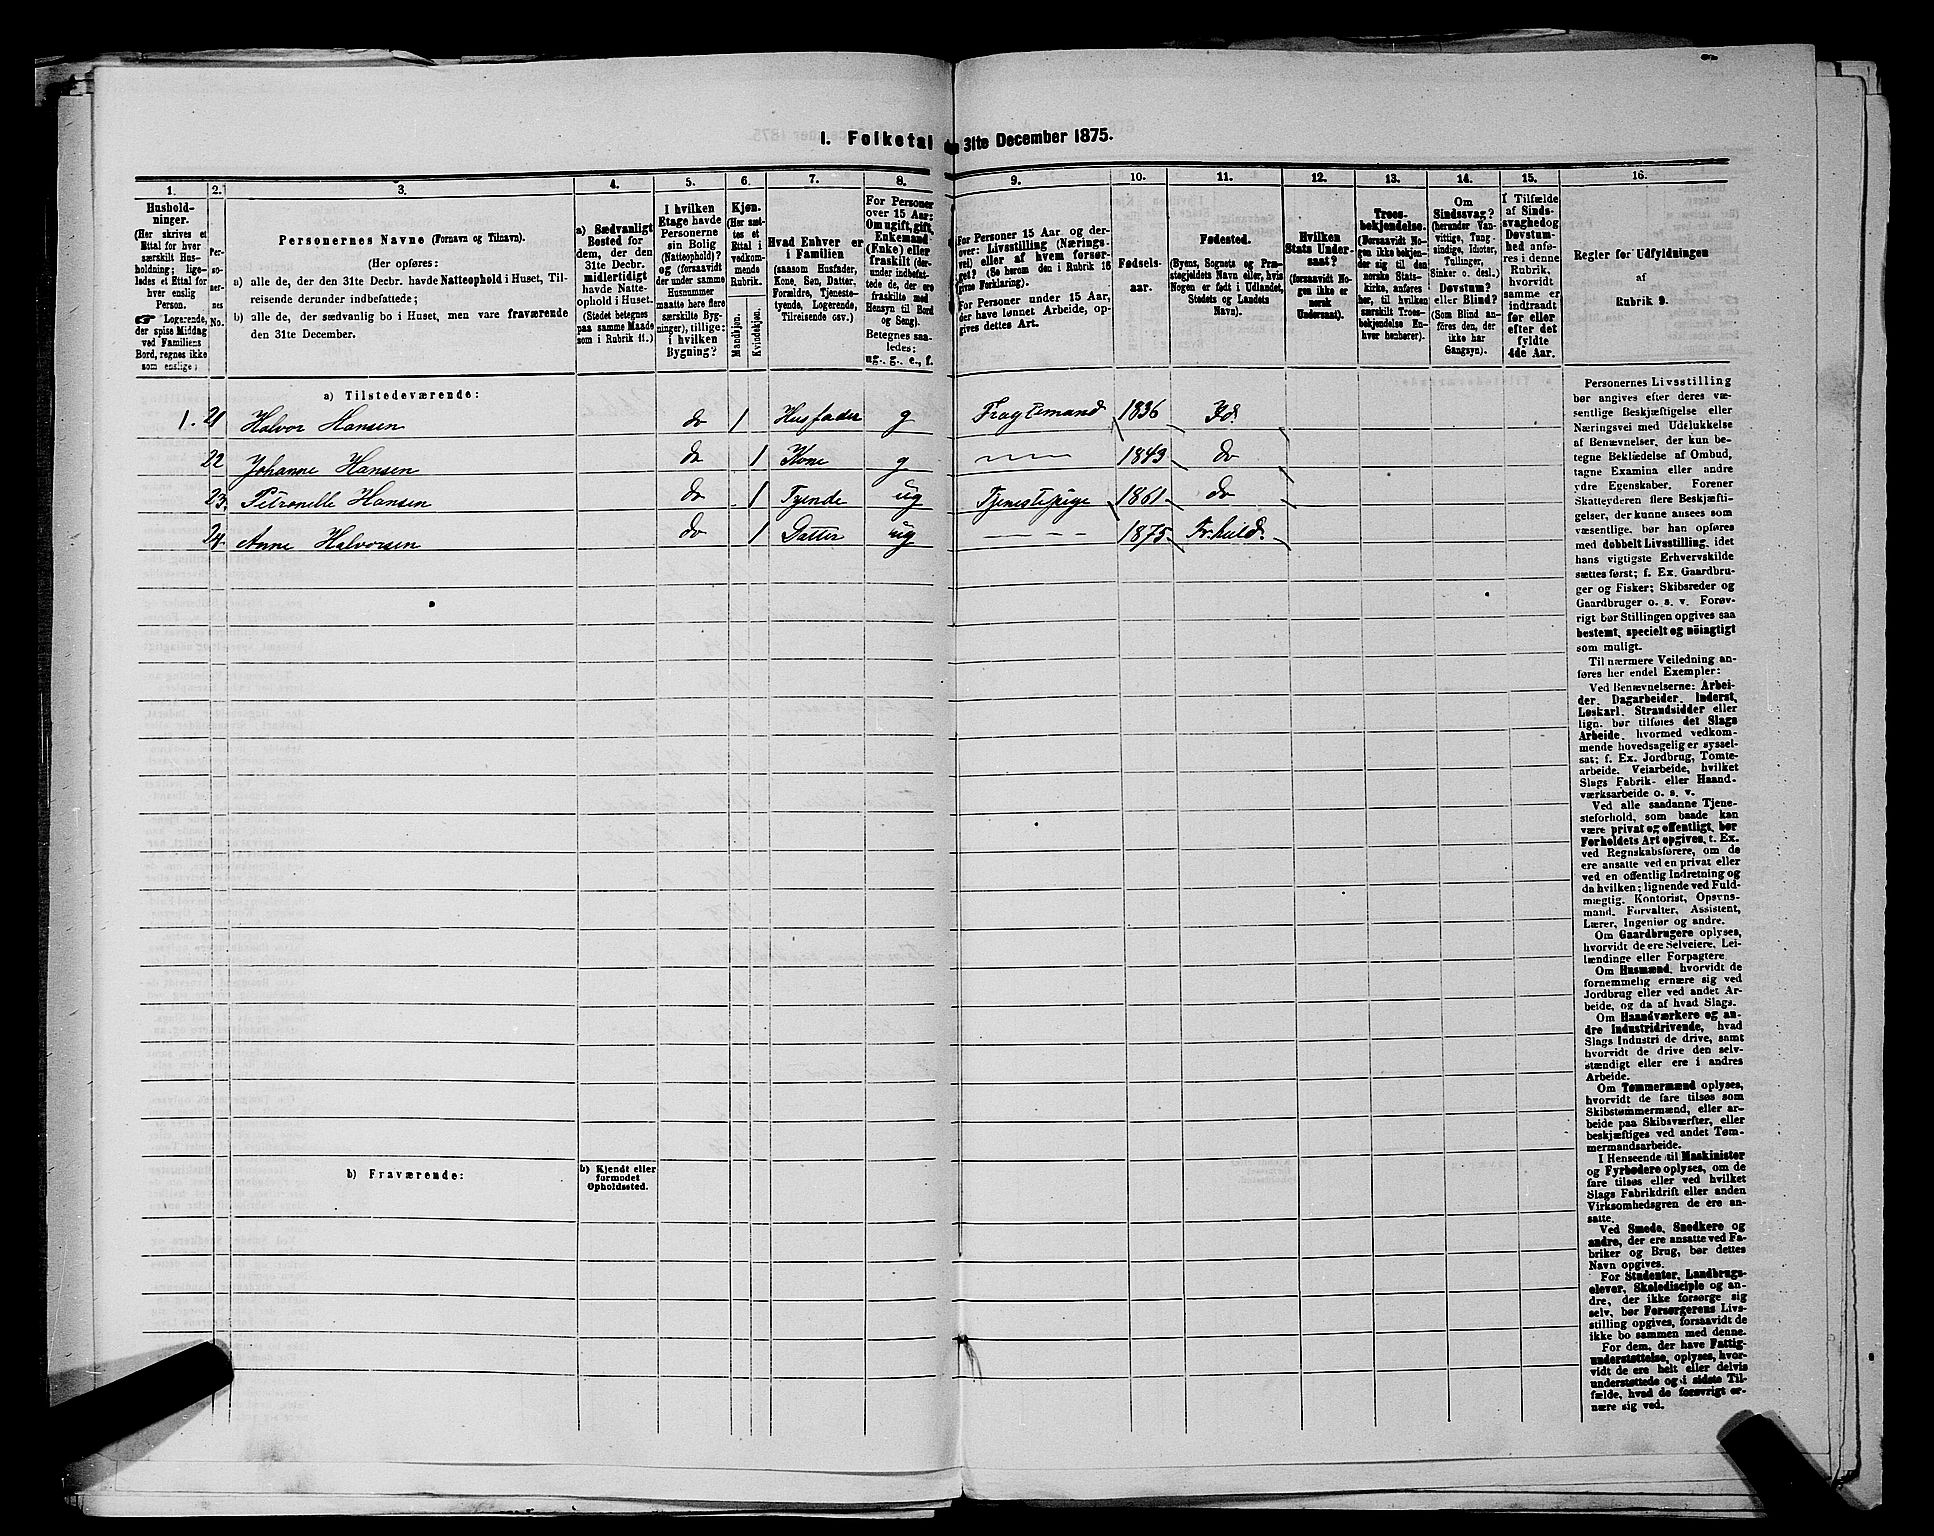 I. Folketal den 31te December 1875.
1. 2. 3. 4. 5. 6. 7. 8. 9. 10. 11. 12. 13. 14. 15. 16.
Hushold-
ninger.
(Her skrives et
Ettal for hver
særskilt Hus-
holdning; lige-
ledes et Ettal for
hver enslig
Person.
☞ Logerende,
der spise Middag
ved Familiens
Bord, regnes ikke
som enslige)
Per-
so-
ner-
nes
No.
Personernes Navne (Fornavn og Tilnavn).
(Her opføres:
a) alle de, der den 31te Decbr. havde Natteophold i Huset, Til-
reisende derunder indbefattede;
b) alle de, der sædvanlig bo i Huset, men vare fraværende
den 31te December.
a) Sædvanligt
Bosted for
dem, der den
31te Decbr.
midlertidigt
havde Natte-
ophold i Huset.
(Stedet betegnes
paa samme Maade
som i Rubrik 11.)
I hvilken
Etage havde
Personerne
sin Bolig
(Natteophold)?
og (forsaavidt
der under samme
Husnummer
maatte høre flere
særskilte Byg-
ninger), tillige:
i hvilken
Bygning?
Kjøn.
(Her sæt-
tes et
Ettal i
vedkom-
mende
Rubrik.
Mandkjøn.
Kvindekjøn.
Hvad Enhver er
i Familien
(saasom Husfader,
Kone, Søn, Datter,
Forældre, Tjeneste-
tyende, Logerende,
Tilreisende osv.)
For Personer
over 15 Aar:
Om ugift, gift,
Enkemand
(Enke) eller
fraskilt (der-
under indbefat-
tede de, der ere
fraskilte med
Hensyn til Bord
og Seng).
Betegnes saa-
ledes;
ug., g., e., f.
For Personer 15 Aar og der-
over: Livsstilling (Nærings-
vei) eller af hvem forsør-
get? (Se herom den i Rubrik 16
givne Forklaring).
For Personer under 15 Aar,
der have lønnet Arbeide, op-
gives dettes Art.
Fødsels-
aar.
Fødested.
(Byens, Sognets og Præ-
stegjeldets Navn eller, hvis
Nogen er født i Udlandet,
Stedets og Landets
Navn).
Hvilken
Stats Under-
saat?
(forsaavidt No-
gen ikke er
norsk
Undersaat).
Troes-
bekjendelse.
(Forsaavidt No-
gen ikke bekjen-
der sig til den
norske Stats-
kirke, anføres
her, til hvilken
særskilt Troes-
bekjendelse En-
hver henhører).
Om
Sindssvag?
(herunder Van-
vittige, Tung-
sindige, Idioter,
Tullinger,
Sinker o. desl.)
Døvstum?
eller Blind?
(Som Blind an-
føres den, der
ikke har
Gangsyn).
I Tilfælde
af Sinds-
svaghed og
Døvstum-
hed anfø-
res i denne
Rubrik,
hvorvidt
samme er
indtraadt
før eller
efter det
fyldte
4de Aar.
Regler for Udfyldningen
af
Rubrik 9.
a) Tilstedeværende:
1. 21 Halvor Hansen do 1 Husfader g Fragtemand 1836 Id.
22 Johanne Hansen do 1 Kone g 1843 do
23. Petronelle Hansen do 1 Tyende ug Tjenestepige 1861 do
24. Anne Halvorsen do 1 Datter ug 1875 Fr.hald.
b) Fraværende:
b) Kjendt eller
formodet
Opholdssted.
Personernes Livsstilling
bør angives efter deres væ-
sentlige Beskjæftigelse eller
Næringsvei med Udelukkelse
af Benævnelser, der kun be-
tegne Beklædelse af Ombud,
tagne Examina eller andre
ydre Egenskaber. Forener
Skatteyderen flere Beskjæfti-
gelser, der kunne ansees som
væsentlige, bør han opføres
med dobbelt Livsstilling, idet
hans vigtigste Erhvervskilde
sættes først; f. Ex. Gaardbru-
ger og Fisker; Skibsreder og
Gaardbruger o. s. v. Forøv-
rigt bør Stillingen opgives saa
bestemt, specielt og nöiagtigt
som muligt.
Til nærmere Veiledning an-
føres her endel Exempler:
Ved Benævnelserne: Arbei-
der, Dagarbeider, Inderst,
Løskarl, Strandsidder eller
lign. bør tilføies det Slags
Arbeide, hvormed vedkom-
mende hovedsagelig er syssel-
sat; f. Ex. Jordbrug, Tomte-
arbeide, Veiarbeide, hvilket
Slags Fabrik- eller Haand-
værksarbeide o. s. v.
Ved alle saadanne Tjene-
steforhold, som baade kan
være privat og offentligt, bør
Forholdets Art opgives, t. Ex.
ved Regnskabsførere, om de
ere ansatte ved en privat eller
ved en offentlig Indretning og
da hvilken; lignende ved Fuld-
mægtig, Kontorist, Opsyns-
mand, Forvalter, Assistent,
Lærer, Ingeniør og andre.
Om Gaardbrugere oplyses,
hvorvidt de ere Selveiere, Lei-
lændinge eller Forpagtere.
Om Husmænd, hvorvidt de
fornemmelig ernære sig ved
Jordbrug eller ved andet Ar-
beide, og da af hvad Slags.
Om Haandværkere og an-
dre Industridrivende, hvad
Slags Industri de drive, samt
hvorvidt de drive den selv-
stændigt eller ere i andres
Arbeide.
Om Tømmermænd oplyses,
hvorvidt de fare tilsøs som
Skibstømmermænd, eller ar-
beide paa Skibsværfter, eller
beskjæftiges ved andet Tøm-
mermandsarbeide.
I Henseende til Maskinister
og Fyrbødere oplyses, om de
fare tilsøs eller ved hvilket
Slags Fabrikdrift eller anden
Virksomhedsgren de ere an-
satte.
Ved Smede, Snedkere og
andre, der ere ansatte ved Fa-
briker og Brug, bør dettes
Navn opgives.
For Studenter, Landbrugs-
elever, Skoledisciple og an-
dre, der ikke forsørge sig
selv, bør Forsørgerens Livs-
stilling opgives, forsaavidt de
ikke bo sammen med denne.
For dem, der have Fattig-
understøttelse, oplyses, hvor-
vidt de ere helt eller delvis
understøttede og i sidste Til-
fælde, hvad de forøvrigt er-
nære sig ved.